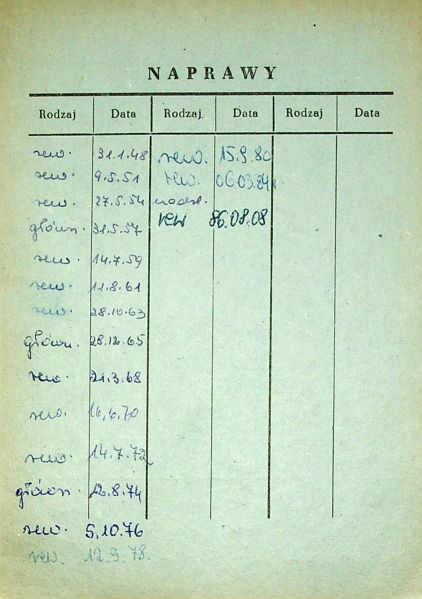 NAPRAWY
Rodzaj Data Rodzaj Data Rodzaj Data
rew. 31.1.48 rew. 15.9.80
rew. 9.5.51 rew. 06.03.84r
rew. 27.5.54
główn. 31.5.57 rew 86.08.08
rew. 14.7.59
rew. 11.8.61
rew. 28.10.63
główn. 28.12.65
rew. 21.3.68
rew. 16.6.70
rew. 14.7.72
główn. 12.8.74
rew. 5.10.76
rew. 12.9.78.